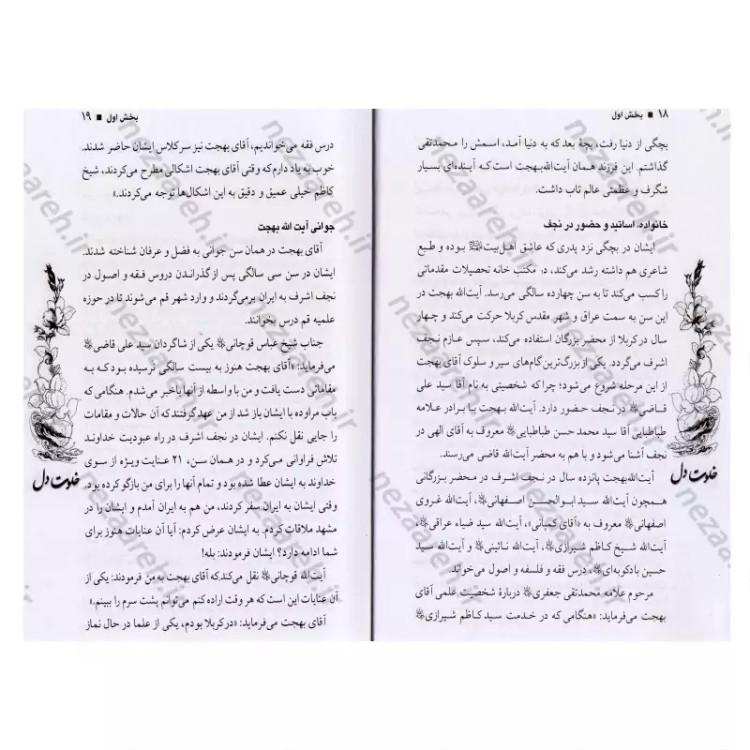 ۱۸ ■ بخش اول
بچگی از دنیا رفت، بچهٔ بعد که به دنیا آمد، اسمش را محمدتقی
گذاشتم. این فرزند همان آیت‌الله‌بهجت است‌که آینده‌ای بسیار
شگرف و عظمتی عالم تاب داشت.
خانواده، اساتید و حضور در نجف
ایشان در بچگی نزد پدری که عاشق اهل‌بیت بوده و طبع
شاعری هم داشته رشد می‌کند، در مکتب خانه تحصیلات مقدماتی
را کسب می‌کند تا به سن چهارده سالگی می‌رسد. آیت‌الله بهجت در
این سن به سمت عراق و شهر مقدس کربلا حرکت می‌کند و چهار
سال در کربلا از محضر بزرگان استفاده می‌کند، سپس عازم نجف
اشرف می‌گردد. یکی از بزرگ‌ترین گام‌های سیر و سلوک آقای بهجت
از این مرحله شروع می‌شود؛ چرا که شخصیتی به نام آقا سید علی
قاضی در نجف حضور دارد. آیت‌الله بهجت با برادر علامه
طباطبایی آقا سید محمد حسن طباطبایی معروف به آقای الهی در
نجف آشنا می‌شود و با هم به محضر آیت‌الله قاضی می‌رسند.
آیت‌الله‌بهجت پانزده سال در نجف اشرف در محضر بزرگانی
همچون آیت‌الله سید ابوالحسن اصفهانی، آیت‌الله غروی
اصفهانی معروف به «آقای کمپانی»، آیت‌الله سید ضیاء عراقی،
آیت‌الله شیخ کاظم شیرازی، آیت‌الله نائینی و آیت‌الله سید
حسین بادکوبه‌ای، درس فقه و فلسفه و اصول می‌خواند.
مرحوم علامه محمدتقی جعفری دربارهٔ شخصیت علمی آقای
بهجت می‌فرماید: «هنگامی که در خدمت سید کاظم شیرازی
خلوت دل
بخش اول ■ ۱۹
درس فقه می‌خواندیم، آقای بهجت نیز سرکلاس ایشان حاضر شدند.
خوب به یاد دارم که وقتی آقای بهجت اشکالی مطرح می‌کردند، شیخ
کاظم خیلی عمیق و دقیق به این اشکال‌ها توجه می‌کردند.»
جوانی آیت الله بهجت
آقای بهجت در همان سن جوانی به فضل و عرفان شناخته شدند.
ایشان در سن سی سالگی پس از گذراندن دروس فقه و اصول در
نجف اشرف به ایران برمی‌گردند و وارد شهر قم می‌شوند تا در حوزه
علمیه قم درس بخوانند.
جناب شیخ عباس قوچانی یکی از شاگردان سید علی قاضی
می‌فرماید: «آقای بهجت هنوز به بیست سالگی نرسیده بود که به
مقاماتی دست یافت و من با واسطه از آنها باخبر می‌شدم. هنگامی که
باب مراوده با ایشان باز شد از من عهد گرفتند که آن حالات و مقامات
را جایی نقل نکنم. ایشان در نجف اشرف در راه عبودیت خداوند
تلاش فراوانی می‌کرد و در همان سن، ۲۱ عنایت ویژه از سوی
خداوند به ایشان عطا شده بود و تمام آنها را برای من بازگو کرده بود.
وقتی ایشان به ایران سفر کردند، من هم به ایران آمدم و ایشان را در
مشهد ملاقات کردم. به ایشان عرض کردم: آیا آن عنایات هنوز برای
شما ادامه دارد؟ ایشان فرمودند: بله!
آیت‌الله قوچانی نقل می‌کند که آقای بهجت به من فرمودند: یکی از
آن عنایات این است که هر وقت اراده کنم می‌توانم پشت سرم را ببینم.»
آقای بهجت می‌فرماید: «در کربلا بودم، یکی از علما در حال نماز
خلوت دل
nezaareh.ir